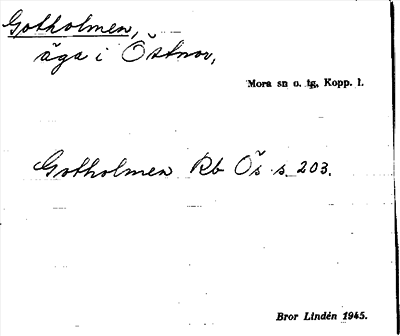 Gotholmen,
äga i Östnor,
Mora sn o. tg, Kopp. l.
Gotholmen Rb Ös s. 203.
Bror Lindén 1945.